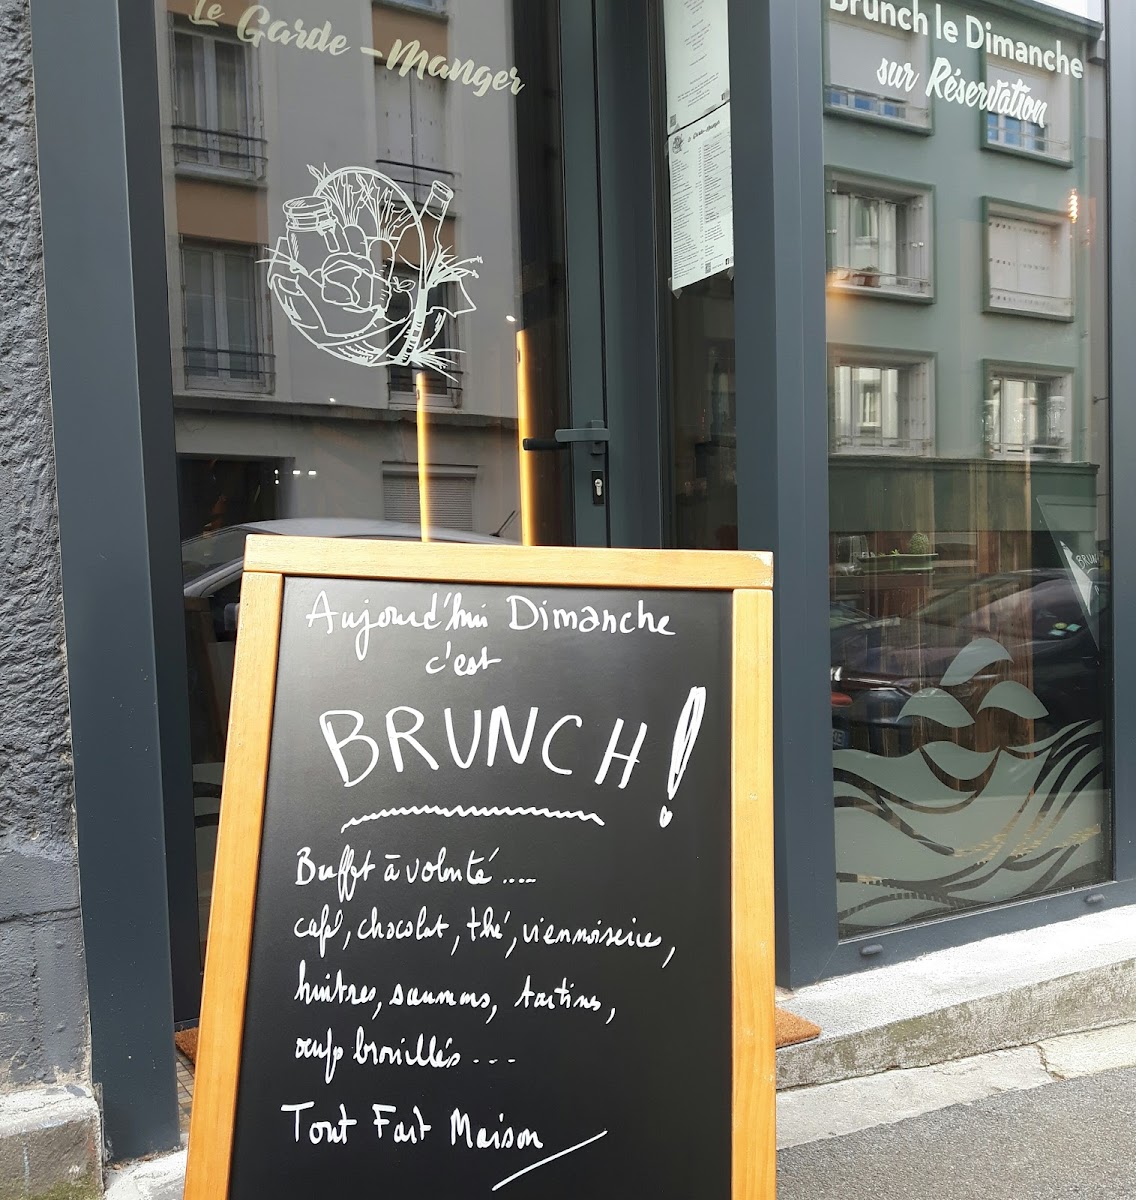 Le Garde-Manger
Brunch le Dimanche
sur Réservation
Le Garde-Manger
BRUNC
Aujourd'hui Dimanche
c'est
BRUNCH!
Buffet à volonté.....
café, chocolat, thé, viennoiseries,
huîtres, saumons, tartines,
œufs brouillés...
Tout Fait Maison